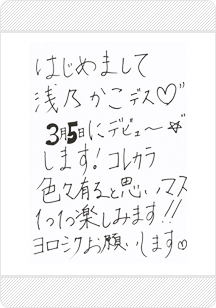 はじめまして
浅乃かこデス♡"
3月5日にデビュ〜☆
します!コレカラ
色々有ると思いマス
1つ1つ楽しみます!!
ヨロシクお願いします♡